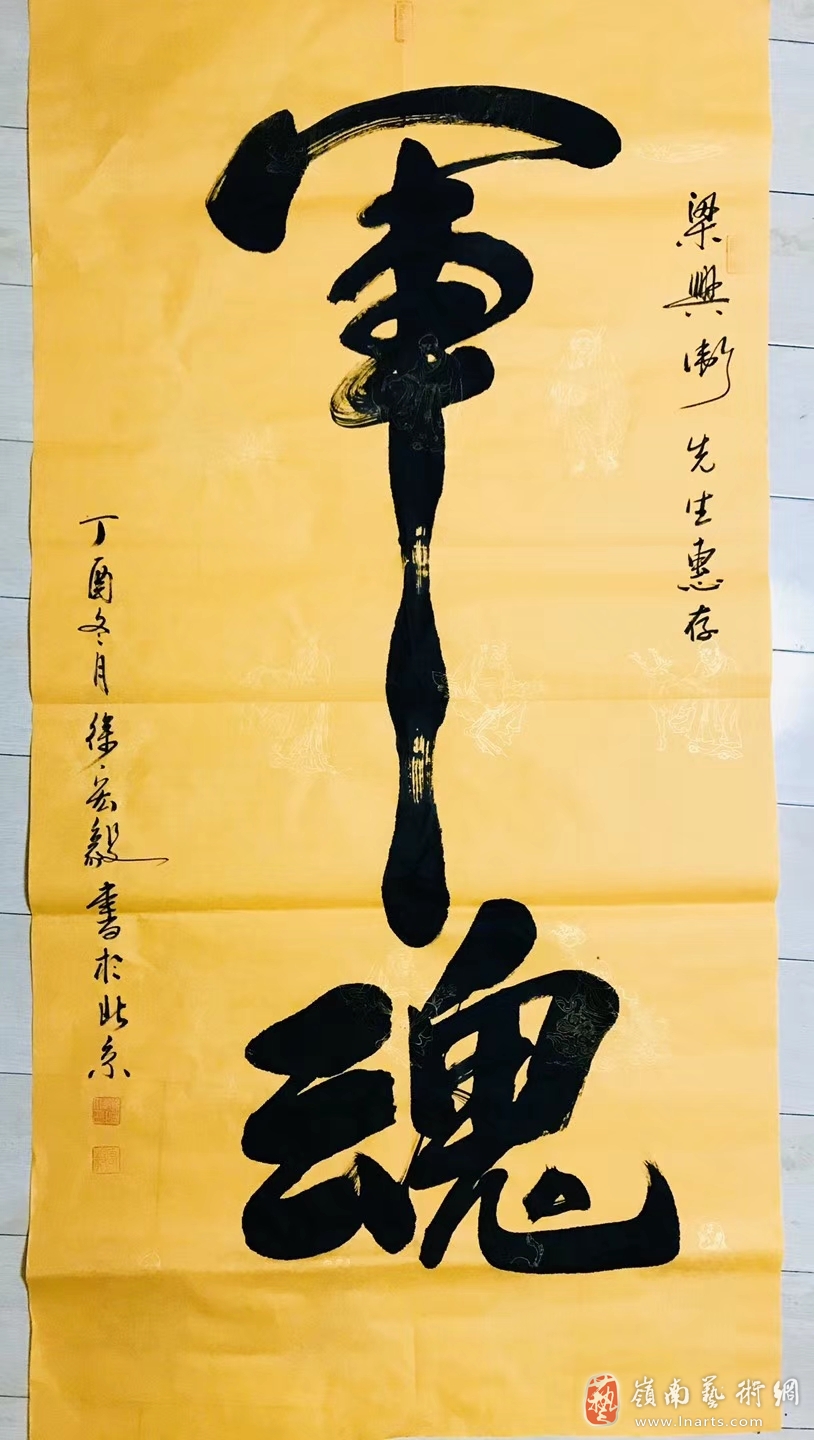 軍魂
梁興衛先生惠存
丁酉冬月徐宏毅書於北京
嶺南藝術網
www.lnarts.com